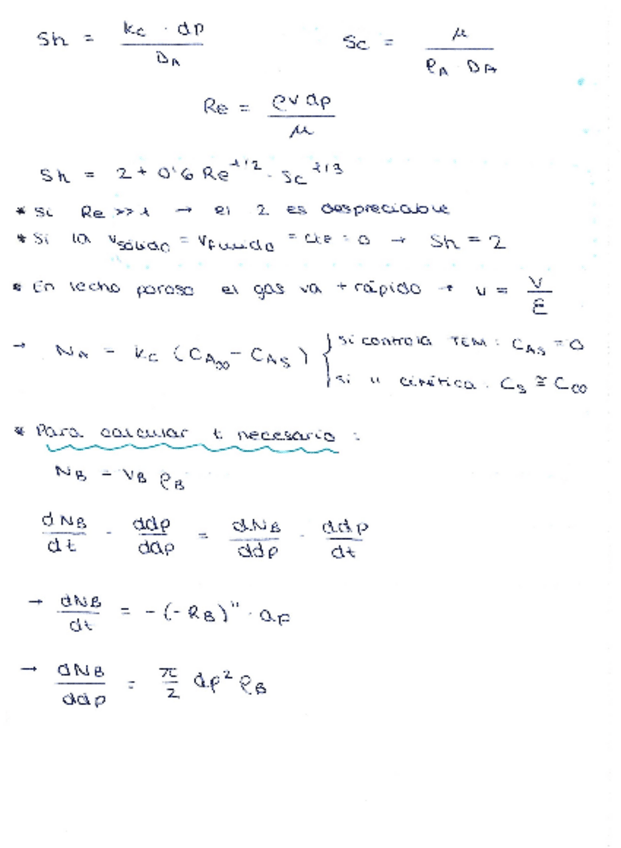 Sh = kc · dp / DA    Sc = μ / ρA · DA
Re = ρ v dp / μ
Sh = 2 + 0'6 Re^1/2 · Sc^1/3
* Si Re >> 1 → el 2 es despreciable
* Si la vsólido = vfluido = cte = 0 → Sh = 2
* En lecho poroso el gas va + rápido → v = V / ε
→ NA = kc (CA∞ - CAS) { si controla TEM: CAS = 0
si " cinética: CS ≅ C∞
* Para calcular t necesario:
NB = VB ρB
dNB/dt · ddp/ddp = dNB/ddp · ddp/dt
→ dNB/dt = -(-RB)" · ap
→ dNB/ddp = π/2 dp² ρB